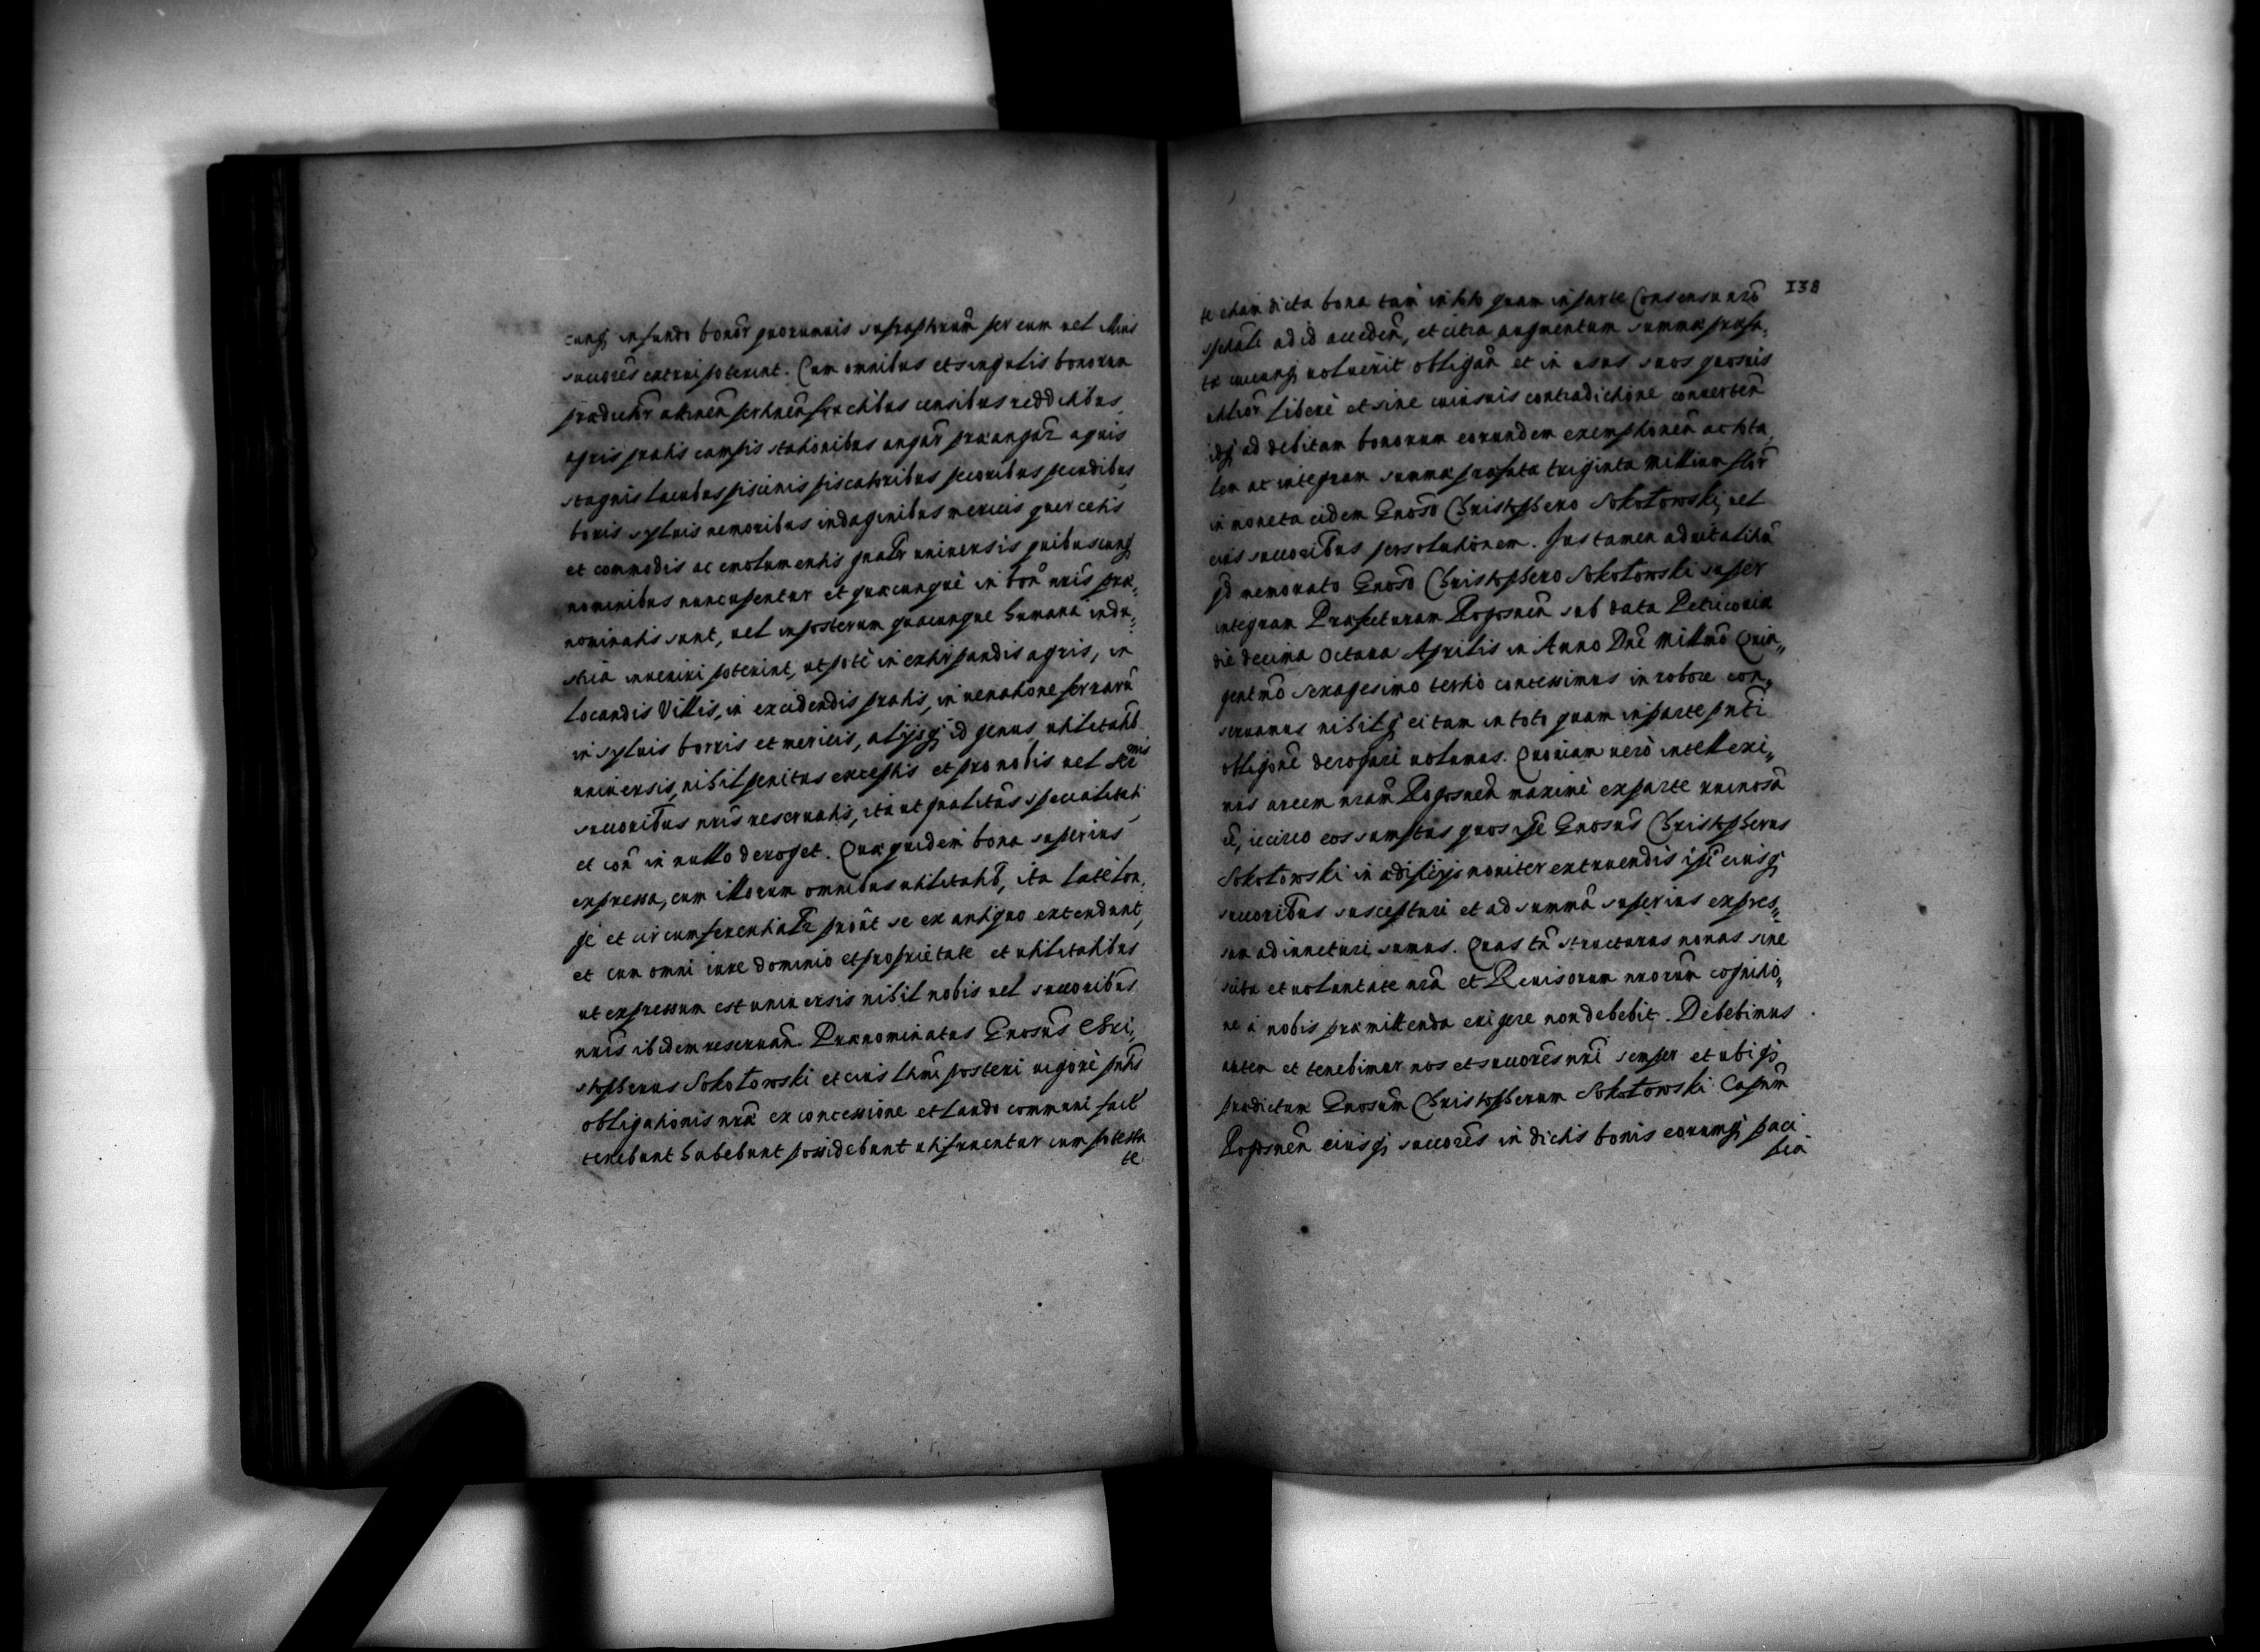 cunq̃ in fundo bonor̃ quorumuis supraptorum̃ per eum vel illius
succores̃ extrui poterint. Cum omnibus et singulis bonorum
prædictor̃ attineñ pertineñ fructibus censibus redditibus
agris pratis campis stationibus angar̃ præangar̃ aquis
stagnis lacubus piscinis piscatoribus pecoribus pecudibus
boris syluis nemoribus indaginibus mericis quercetis
et commodis ac emolumentis gñalr̃ uniuersis quibuscunq̃
nominibus nuncupentur et quæcunque in boñ nr̃is præ„
nominatis sunt, vel in posterum quacunque humana indu„
stria inueniri poterint, utpote in extirpandis agris, in
locandis Villis, in excidendis pratis, in uenatione ferrarũ
in syluis borris et mericis, alijsq̃ id genus utilitatib̃
uniuersis, nihil penitus exceptis et pro nobis vel Sermis
succoribus̃ nr̃is reseruatis, ita ut gñalitas̃ specialitati
et coñ in nullo deroget. Quæ quidem bona superius
expressa, cum illorum omnibus utilitatib̃, ita late lon„
ge et circumferentialr̃ prout se ex antiquo extendunt,
et cum omni iure dominio et proprietate et utilitatibus
ut expressum est uniuersis nihil nobis vel succoribus̃
nr̃is ibidem reseruañ. Prænominatus Gnosus̃ Chri„
stopherus Sokołowski et eius ltimi posteri uigore pñtis
obligationis nr̃æ ex concessione et laudo communi facti
tenebunt habebunt possidebunt utifruentur cum potesta
te
138
te etiam dicta bona tam in toto quam in parte Consensu nr̃o
spẽali ad id acceden̄, et citra augmentum summæ præfa„
tæ cuicunq̃ voluerit obligañ et in usus suos quosuis
ultior̃ libere et sine cuiusuis contradictione conuerteñ
idq̃ ad debitam bonorum eorundem exemptioneñ ac tota
lem ac integram summæ præfatæ triginta Millium flor̃
in moneta eidem Gnoso Christophero Sokołowski, vel
eius succoribus̃ persolutionem. Jus tamen aduitalitiũ
qd memorato Gnoso Christophero Sokołowski super
integram Præfecturam Rogosneñ sub data Petricouiæ
die decima Octaua Aprilis in Anno Dñi Millmo Quin„
gentmo sexagesimo tertio concessimus in robore con„
seruamus nihilq̃ ei tam in toto quam in parte pñti
obligoñe derogari uolumus. Quoniam uero intellexi„
mus arcem nr̃am Rogosneñ maxime ex parte ruinosã
eẽ, iccirco eos sumptus quos ipẽ Gnosus̃ Christopherus
Sokołowski in ædificijs nouiter extruendis ipẽ eiusq̃
succoribus̃ suscepturi et ad summã superius expres„
sam adiuncturi sumus. Quas tñ structuras nouas sine
scitu et uoluntate nr̃a et Reuisorum nr̃orum̃ cognitio„
ne a nobis præmittenda erigere non debebit. Debebimus
autem et tenebimur nos et succores̃ nr̃i semper et ubiq̃
prædictum Gnosum̃ Christopherum Sokołowski Capñm
Rogosneñ eiusq̃ succores̃ in dictis bonis eorumq̃ paci
fica